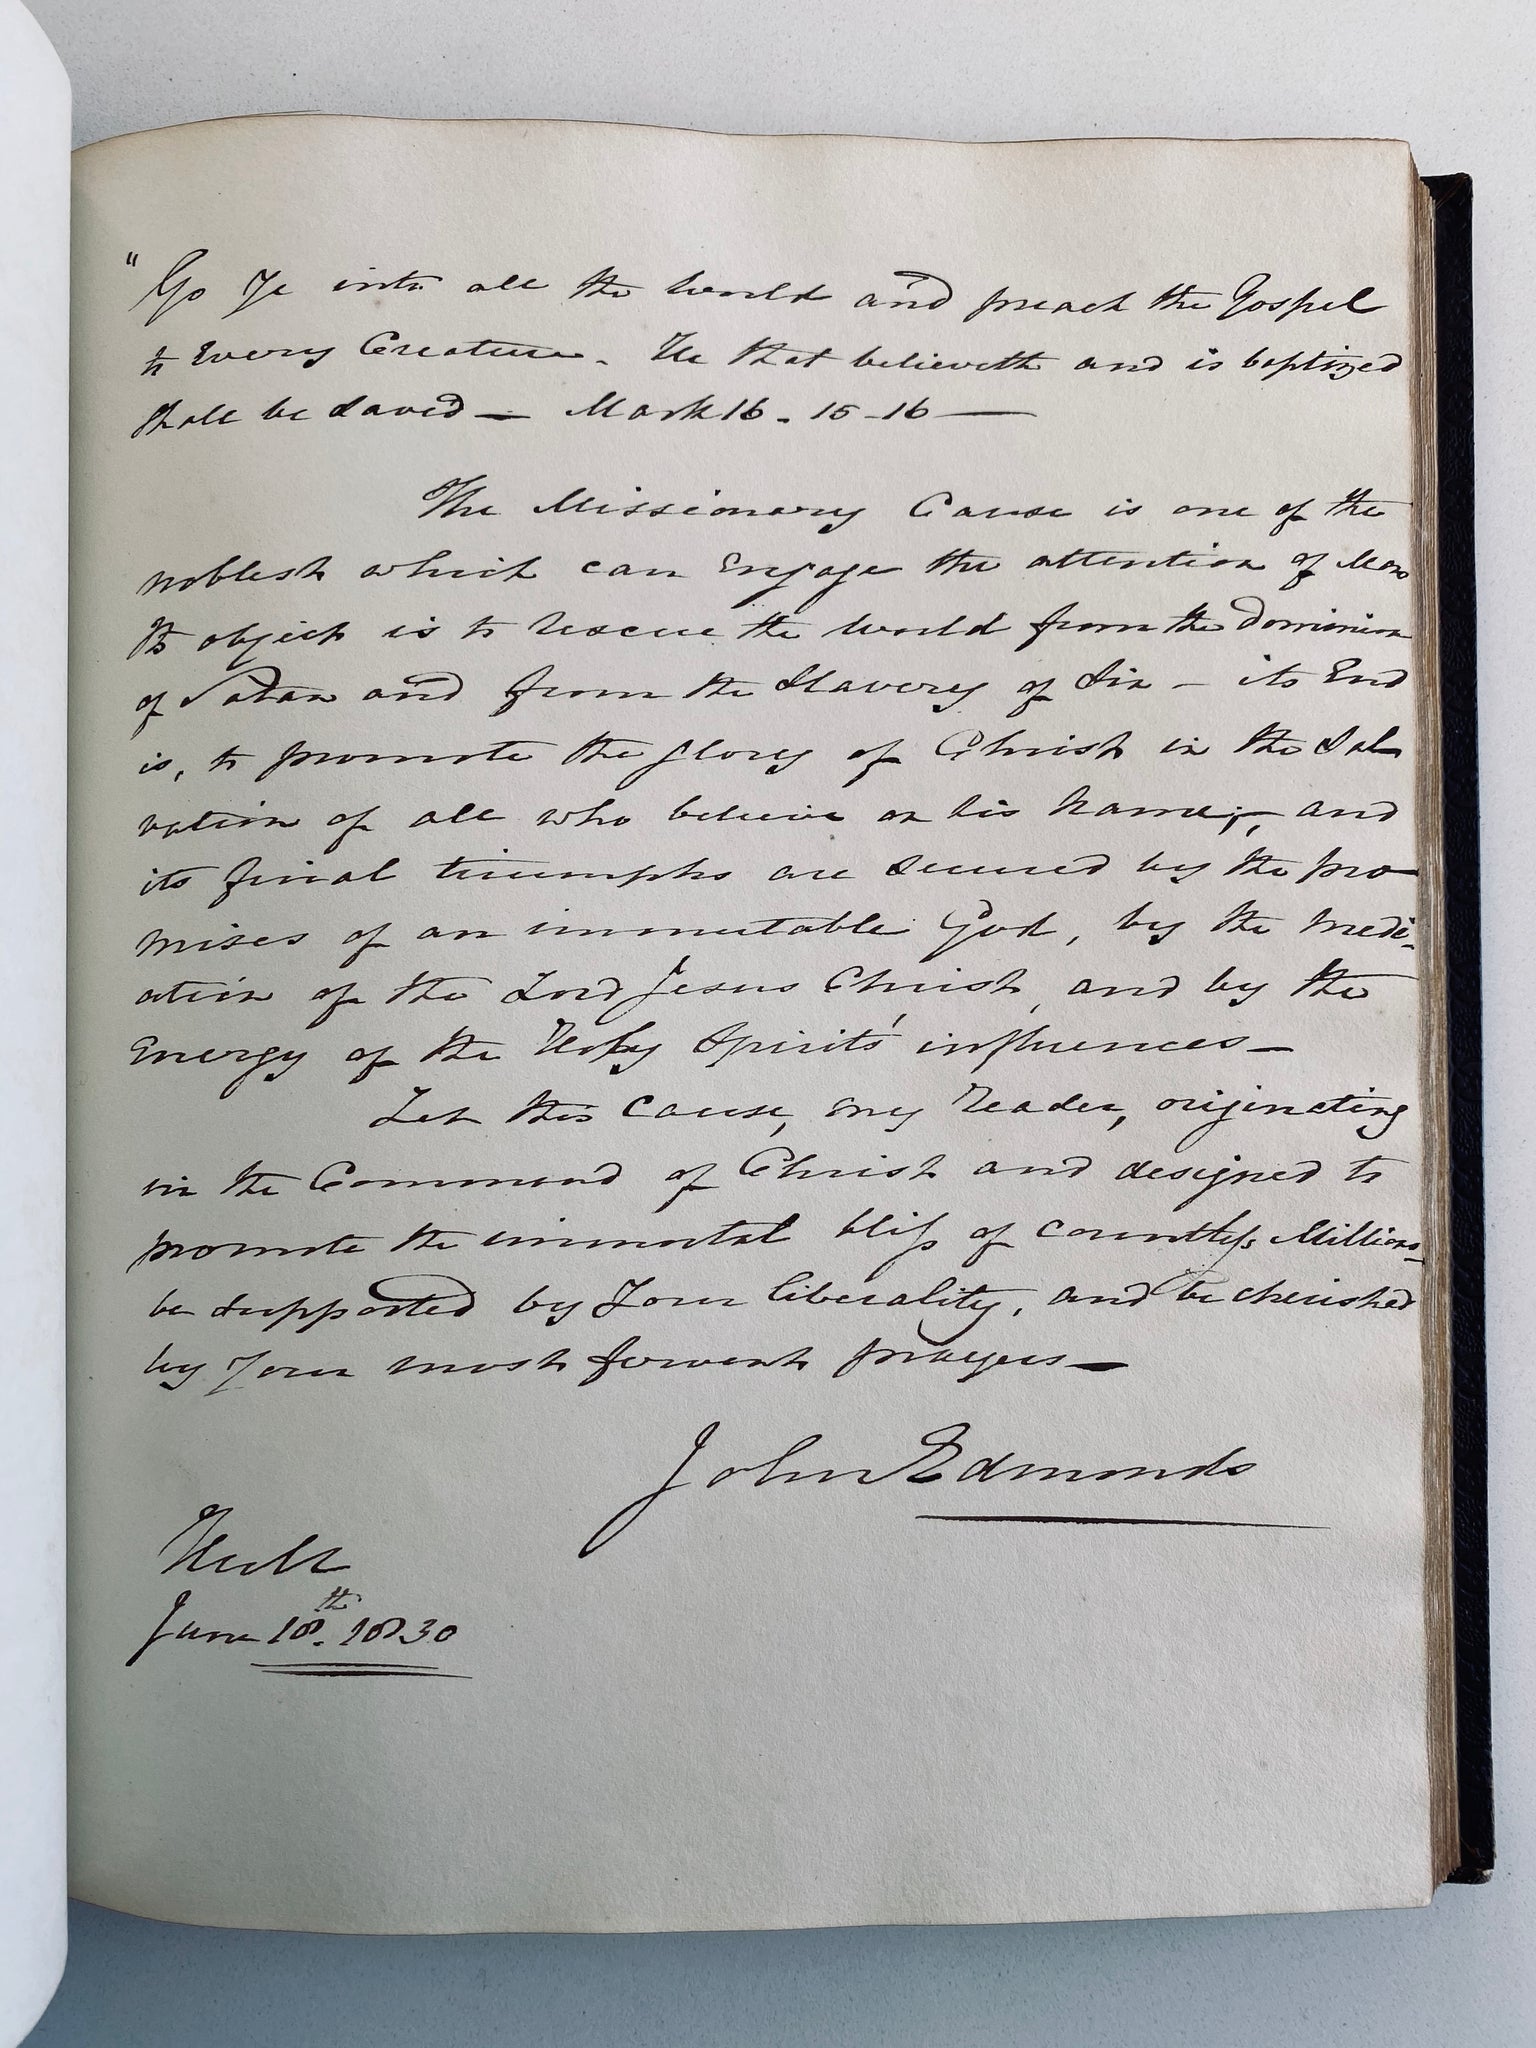 "Go Ye into all the World and preach the Gospel
to Every Creature. He that believeth and is baptized
shall be Saved — Mark 16. 15-16 —
The Missionary Cause is one of the
noblest which can Engage the attention of Man
Its object is to Rescue the World from the Dominion
of Satan and from the Slavery of Sin — its End
is, to promote the glory of Christ in the Sal
vation of all who believe on his Name; — and
its final triumphs are secured by the pro
mises of an immutable God, by the Medi-
ation of the Lord Jesus Christ, and by the
Energy of the Holy Spirit's influences —
Let this Cause, my Reader, originating
in the Command of Christ and designed to
promote the immortal bliss of countless Millions
be supported by Your liberality, and be cherished
by Your most fervent prayers —
John Edmonds
Hull
June 18th. 1830